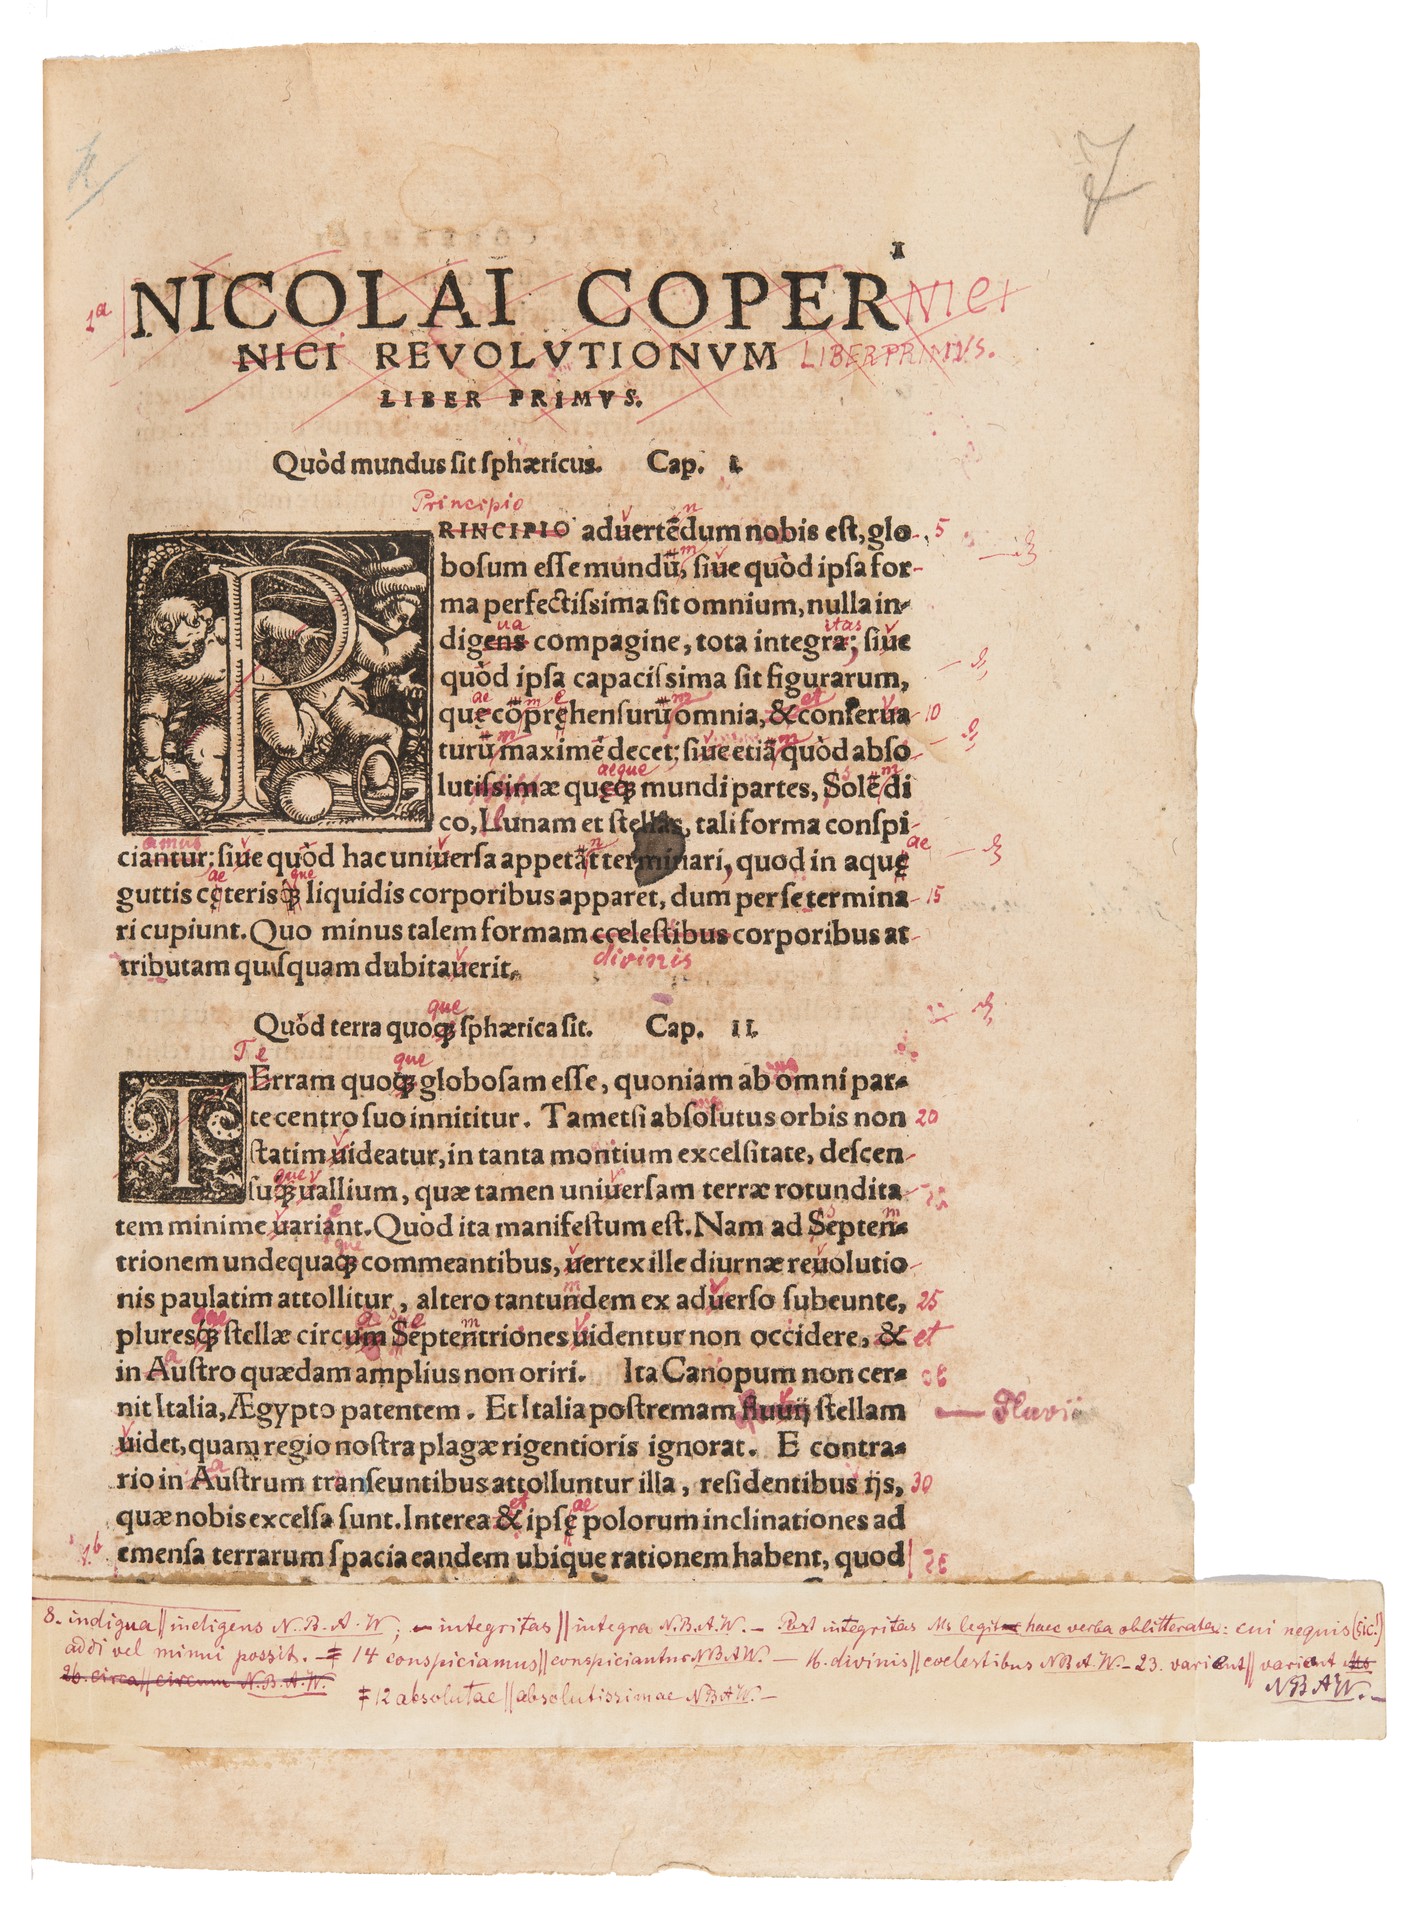 7
I
1a
NICOLAI COPERNICI
NICI REVOLVTIONVM LIBER PRIMVS.
LIBER PRIMVS.
Quòd mundus sit sphæricus. Cap. I.
Principio
RINCIPIO aduertēdum nobis est, glo- 5
bosum esse mundū, siue quòd ipsa for-
ma perfectissima sit omnium, nulla in-
ua itas
digens compagine, tota integra; siue
quòd ipsa capacissima sit figurarum,
ae m e m et
quę cōpręhensurū omnia, & conserua 10
turū maximè decet; siue etiā quòd abso
aeque
lutissimæ quęq; mundi partes, Solē di
co, Lunam et stellas, tali forma conspi-
amus ae
ciantur; siue quòd hac uniuersa appetāt terminari, quod in aquę
ae que
guttis cęterisq; liquidis corporibus apparet, dum per se termina- 15
ri cupiunt. Quo minus talem formam cœlestibus corporibus at-
divinis
tributam quisquam dubitauerit.
que
Quòd terra quoq; sphærica sit. Cap. II.
Te que
Erram quoq; globosam esse, quoniam ab omni par-
te centro suo innititur. Tametsi absolutus orbis non 20
statim uideatur, in tanta montium excelsitate, descen-
que v
suq; uallium, quæ tamen uniuersam terræ rotundita-
tem minime uariant. Quod ita manifestum est. Nam ad Septen-
que
trionem undequaq; commeantibus, uertex ille diurnæ reuolutio-
nis paulatim attollitur, altero tantundem ex aduerso subeunte, 25
que
pluresq; stellæ circum Septentriones uidentur non occidere, & et
in Austro quædam amplius non oriri. Ita Canopum non cer-
nit Italia, Ægypto patentem. Et Italia postremam fluuij stellam — Fluvii
uidet, quam regio nostra plagæ rigentioris ignorat. E contra-
rio in Austrum transeuntibus attolluntur illa, residentibus ijs, 30
et ae
quæ nobis excelsa sunt. Interea & ipsę polorum inclinationes ad
1b
emensa terrarum spacia eandem ubique rationem habent, quod
8. indigua || indigens N. B. A. W; — integritas || integra N. B. A. W. — Post integritas Ms legit haec verba oblitterata: cui nequis (sic!)
addi vel minui possit. — ‡ 14 conspiciamus || conspiciantur N B A W. — 16. divinis || coelestibus N B A W. — 23. varient || variant
N B A W. —
26. circa || circum N. B. A. W. ‡ 12 absolutae || absolutissimae N B A W. —